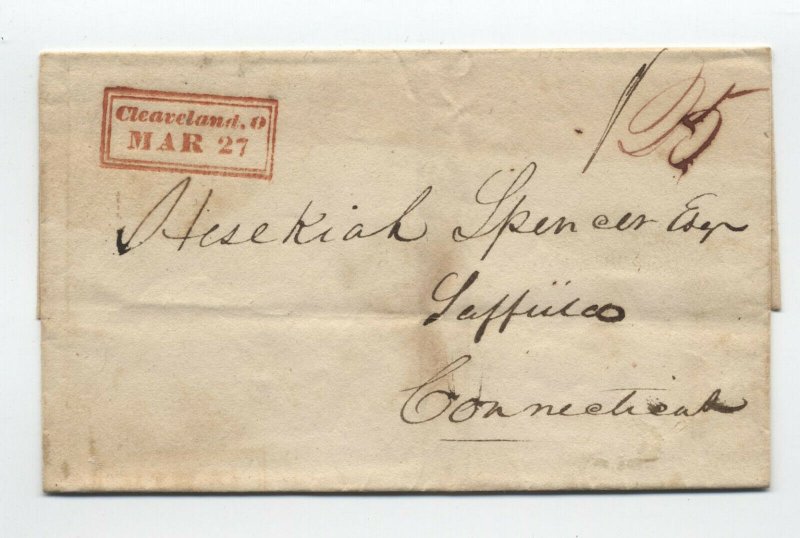 Cleaveland, O
MAR 27
25
Hesekiah Spencer Esqr
Suffield
Connecticut